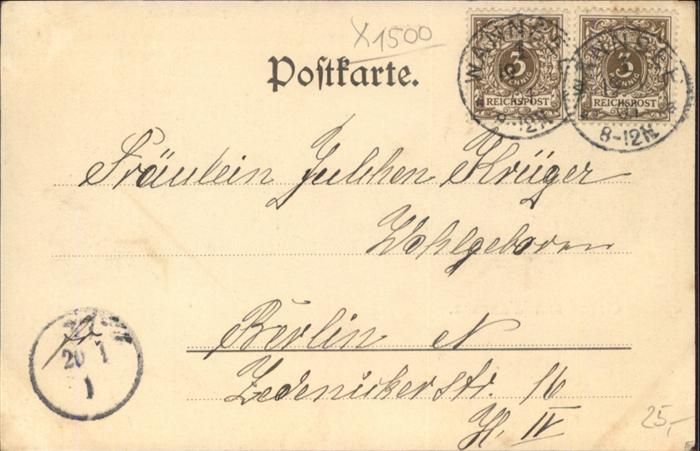 X1500
Postkarte.
3
REICHSPOST
3
PFENNIG
REICHSPOST
WANNSEE
8-12N
WANNSEE
8-12N
Fräulein Julchen Krüger
Wohlgeboren
Berlin N
Zedenickerstr. 16
H. IV
20 1
1
25,-